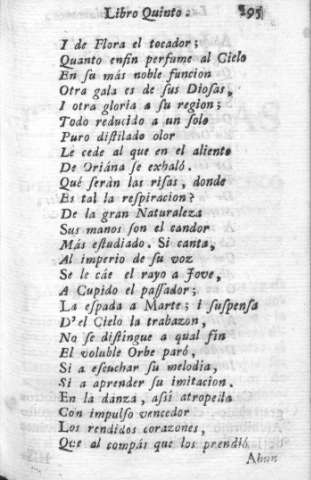 Libro Quinto. 295
I de Flora el tocador;
Quanto enfin perfume al Cielo
En ſu más noble funcion
Otra gala es de ſus Dioſas,
I otra gloria a ſu region;
Todo reducido a un ſolo
Puro diſtilado olor
Le cede al que en el aliento
De Oriána ſe exhaló.
Qué ſerán las riſas, donde
Es tal la reſpiracion?
De la gran Naturaleza
Sus manos ſon el candor
Más eſtudiado. Si canta,
Al imperio de ſu voz
Se le cáe el rayo a Jove,
A Cupido el paſſador;
La eſpada a Marte; i ſuſpenſa
D'el Cielo la trabazon,
No ſe diſtingue a qual fin
El voluble Orbe paró,
Si a eſcuchar ſu melodia,
Si a aprender ſu imitacion.
En la danza, aſsi atropella
Con impulſo vencedor
Los rendidos corazones,
Que al compás que los prendió